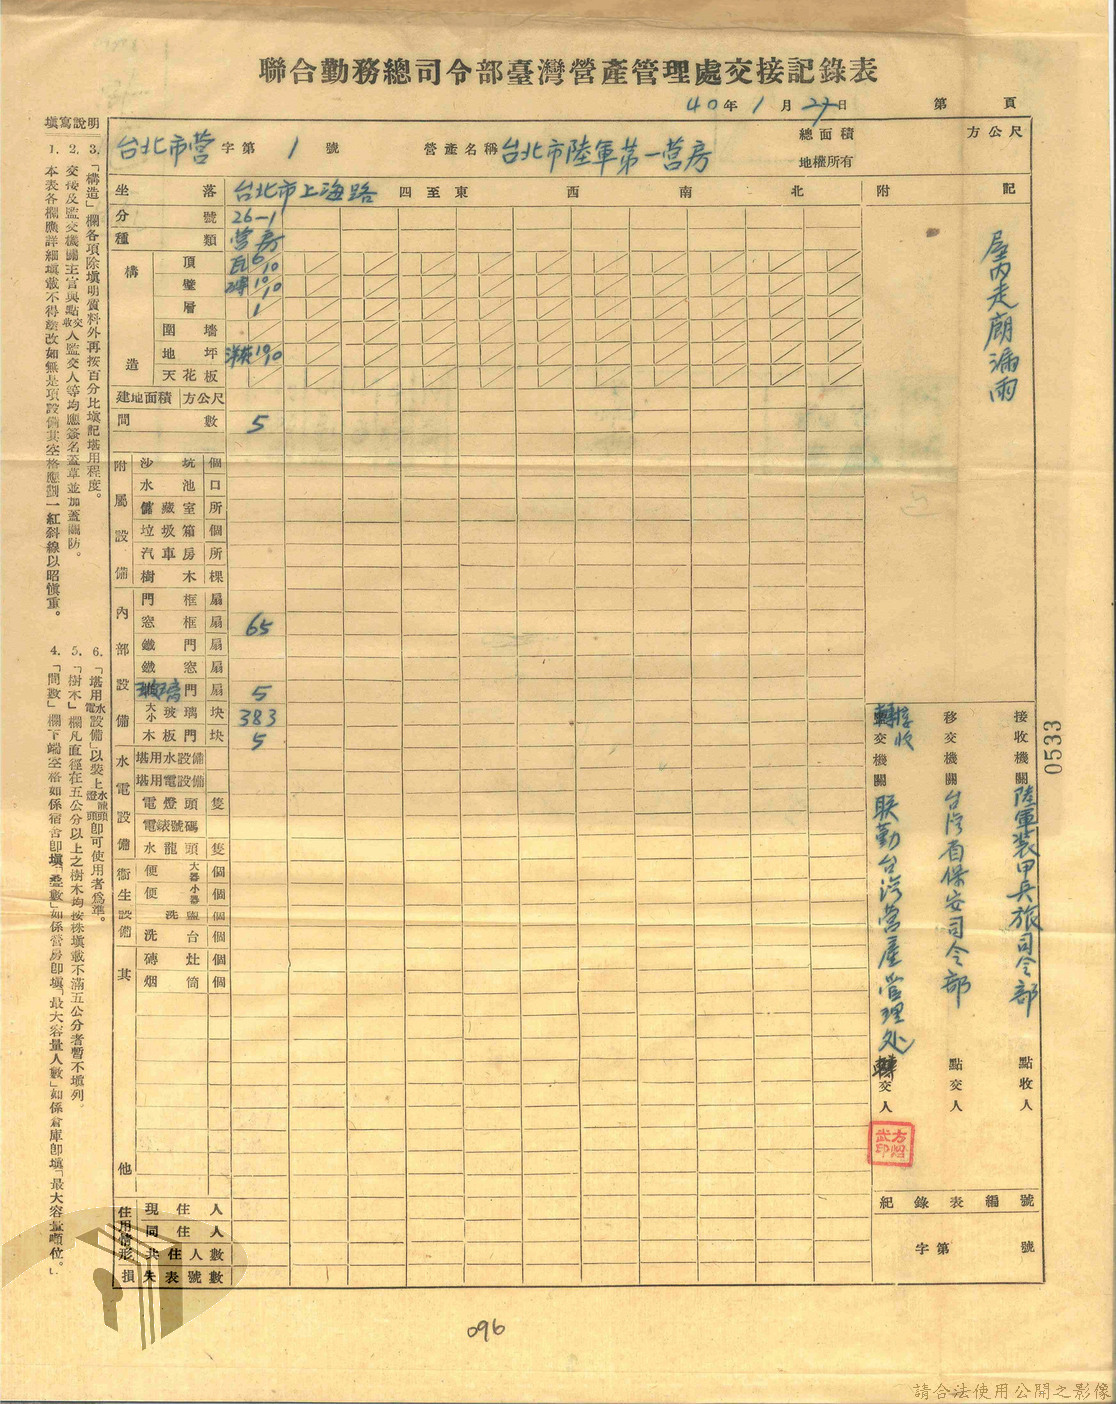 聯合勤務總司令部臺灣營產管理處交接記錄表
40年1月27日
第 頁
台北市營字第1號
營產名稱 台北市陸軍第一營房
總面積 方公尺
地權所有
坐落 台北市上海路
四至東 西 南 北
附記
分號 26-1
種類 營房
構造
頂 瓦 6/10
壁 磚 10/10
層 1
圍墻
地坪 洋灰 10/10
天花板
建地面積 方公尺
間數 5
附屬設備
沙坑 個
水池 口
儲藏室 所
垃圾箱 個
汽車房 所
樹木 棵
內部設備
門框 扇
窓框 扇 65
鐵門 扇
鐵窓 扇
玻璃門 扇 5
大小玻璃 块 383
木板門 块 5
水電設備
堪用水設備
堪用電設備
電燈頭 隻
電錶號碼
水龍頭 隻
衞生設備
大便器 個
小便器 個
洗盥 個
洗台 個
其他
磚灶 個
烟筒 個
住用情形
現住人
同住人
共住人數
損失表號數
屋內走廊漏雨
接收機關 陸軍装甲兵旅司令部
點收人
移交機關 台湾省保安司令部
點交人
轉交機關 接收 联勤台湾營產管理处
轉交人
紀錄表編號
字第 號
填寫說明
1. 本表各欄應詳細填載不得塗改如無是項設備其空格應劃一紅斜線以昭愼重。
2. 交接及監交機關主官與點交收人監交人等均應簽名蓋章並加蓋關防。
3. 「構造」欄各項除填明質料外再按百分比填記堪用程度。
4. 「間數」欄下端空格如係宿舍卽填「叠數」如係營房卽填「最大容量人數」如係倉庫卽填「最大容量噸位。」
5. 「樹木」欄凡直徑在五公分以上之樹木均按株填載不滿五公分者暫不塡列
6. 「堪用水電設備」以裝上水龍頭燈頭卽可使用者爲準。
0533
096
請合法使用公開之影像